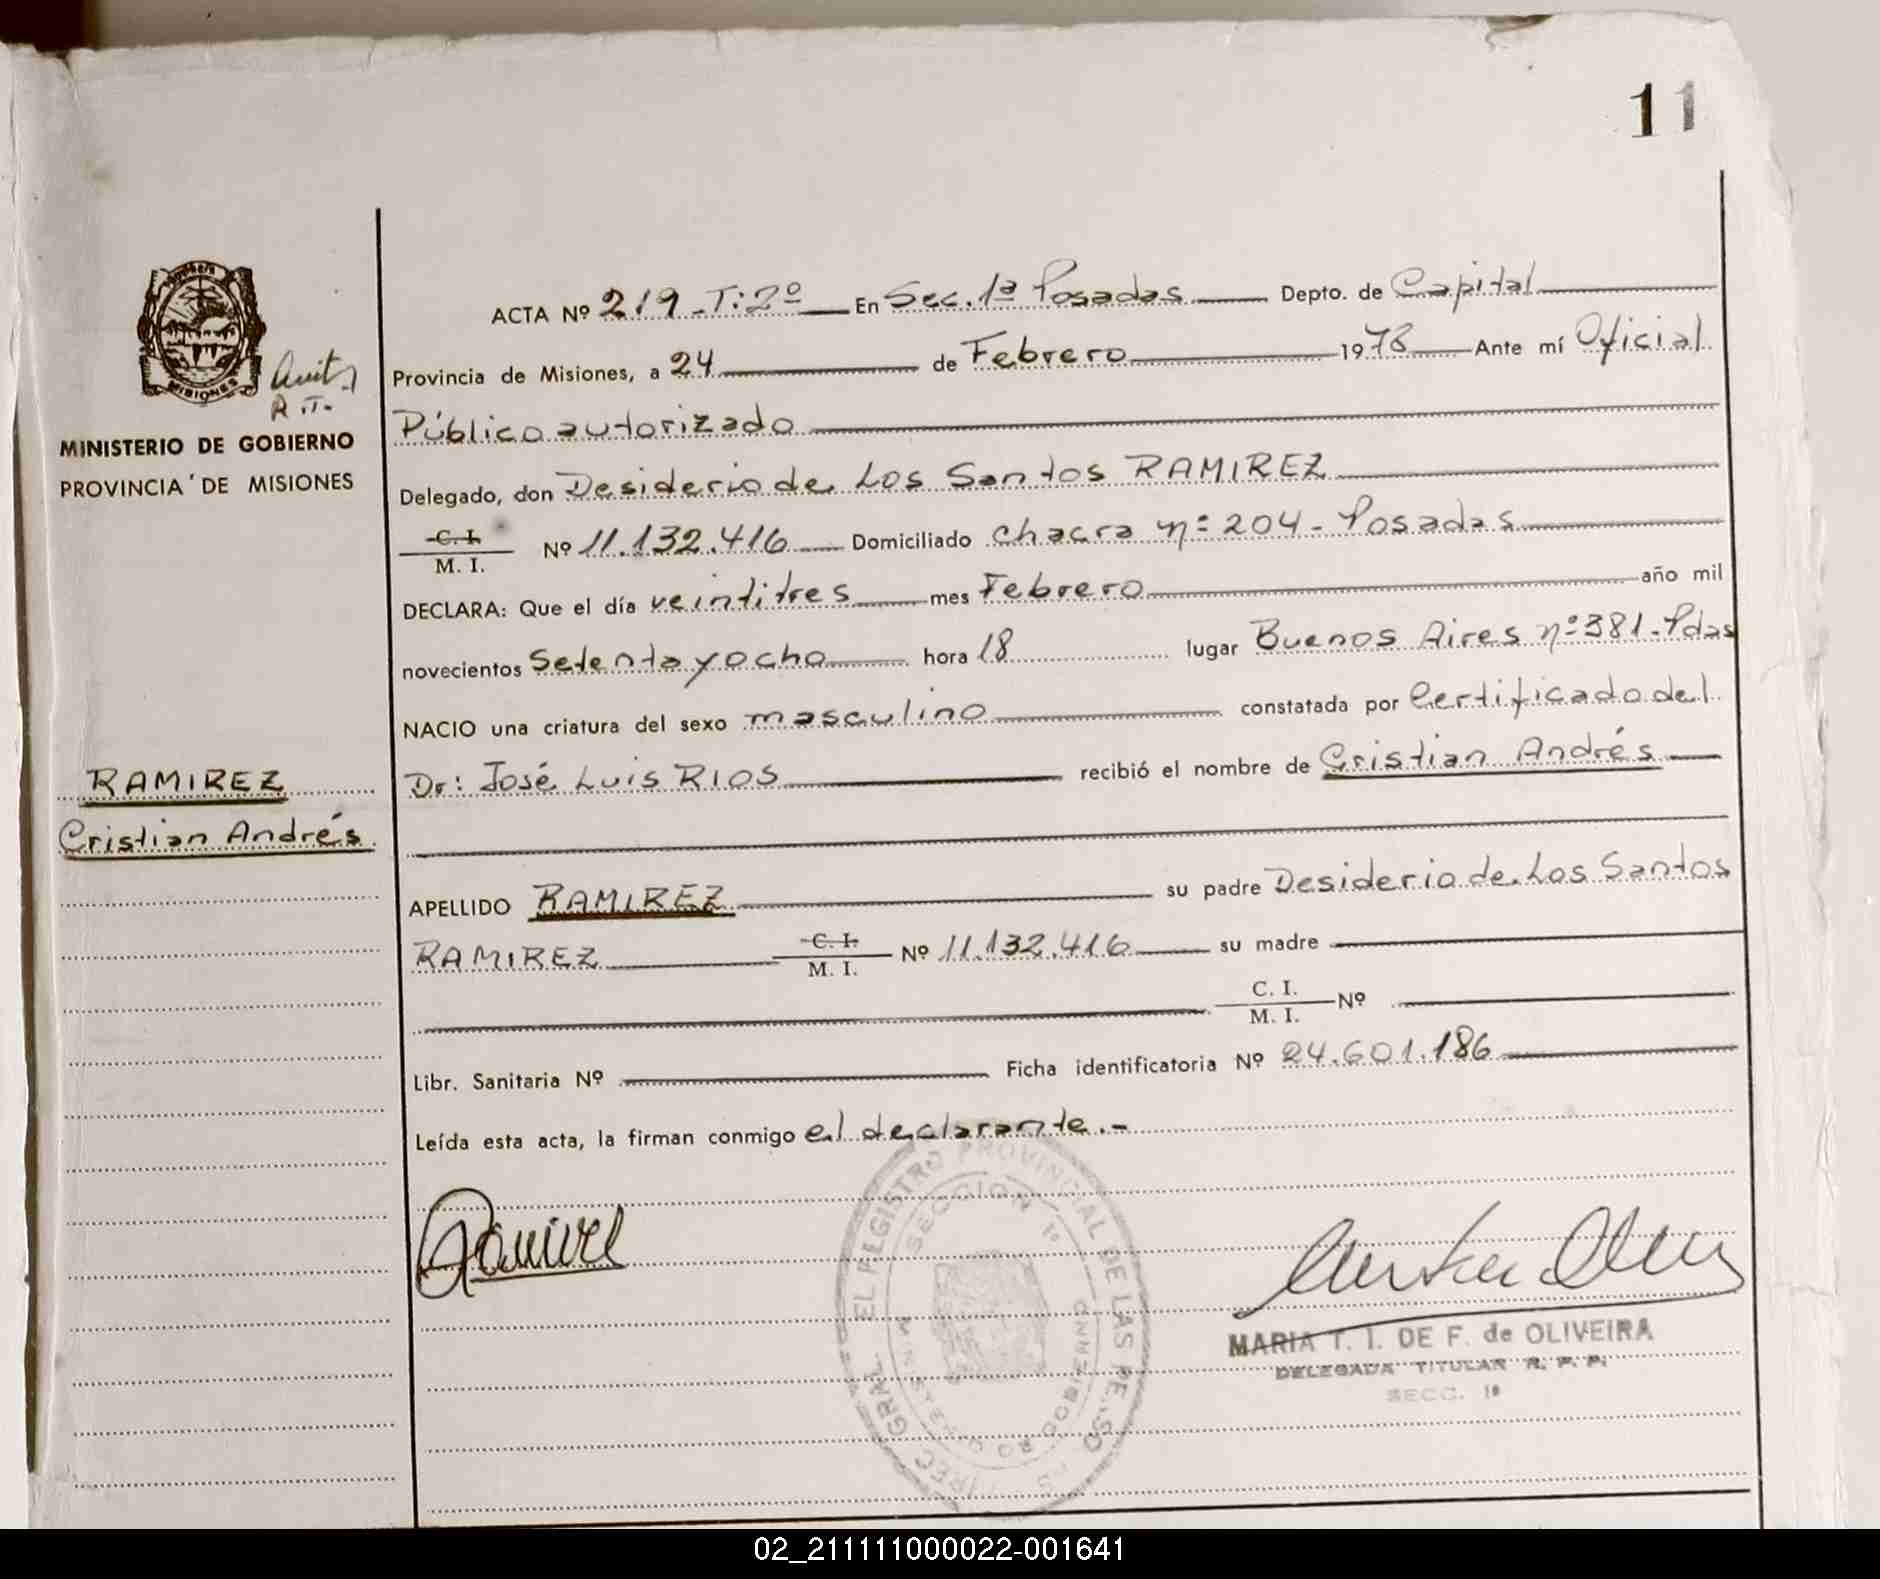 11
ACTA Nº 219 - T: 2º En Sec. 1ª Posadas Depto. de Capital
Provincia de Misiones, a 24 de Febrero 1978 Ante mí Oficial
Público autorizado
MINISTERIO DE GOBIERNO
PROVINCIA DE MISIONES
Delegado, don Desiderio de Los Santos RAMIREZ
C. I.
M. I. Nº 11.132.416 Domiciliado chacra nº 204 - Posadas
DECLARA: Que el día veintitres mes Febrero año mil
novecientos setenta y ocho hora 18 lugar Buenos Aires nº 381 - Pdas
NACIO una criatura del sexo masculino constatada por Certificado del
Dr: José Luis RIOS recibió el nombre de Cristian Andrés
RAMIREZ
Cristian Andrés
APELLIDO RAMIREZ su padre Desiderio de Los Santos
RAMIREZ C. I. M. I. Nº 11.132.416 su madre
C. I.
M. I. Nº
Libr. Sanitaria Nº Ficha identificatoria Nº 24.601.186
Leída esta acta, la firman conmigo el declarante.-
Ramirez
MARIA T. I. DE F. de OLIVEIRA
DELEGADA TITULAR R. P. P.
SECC. 1ª
EL REGISTRO PROVINCIAL DE LAS
SECCION 1º
MISIONES
02_211111000022-001641